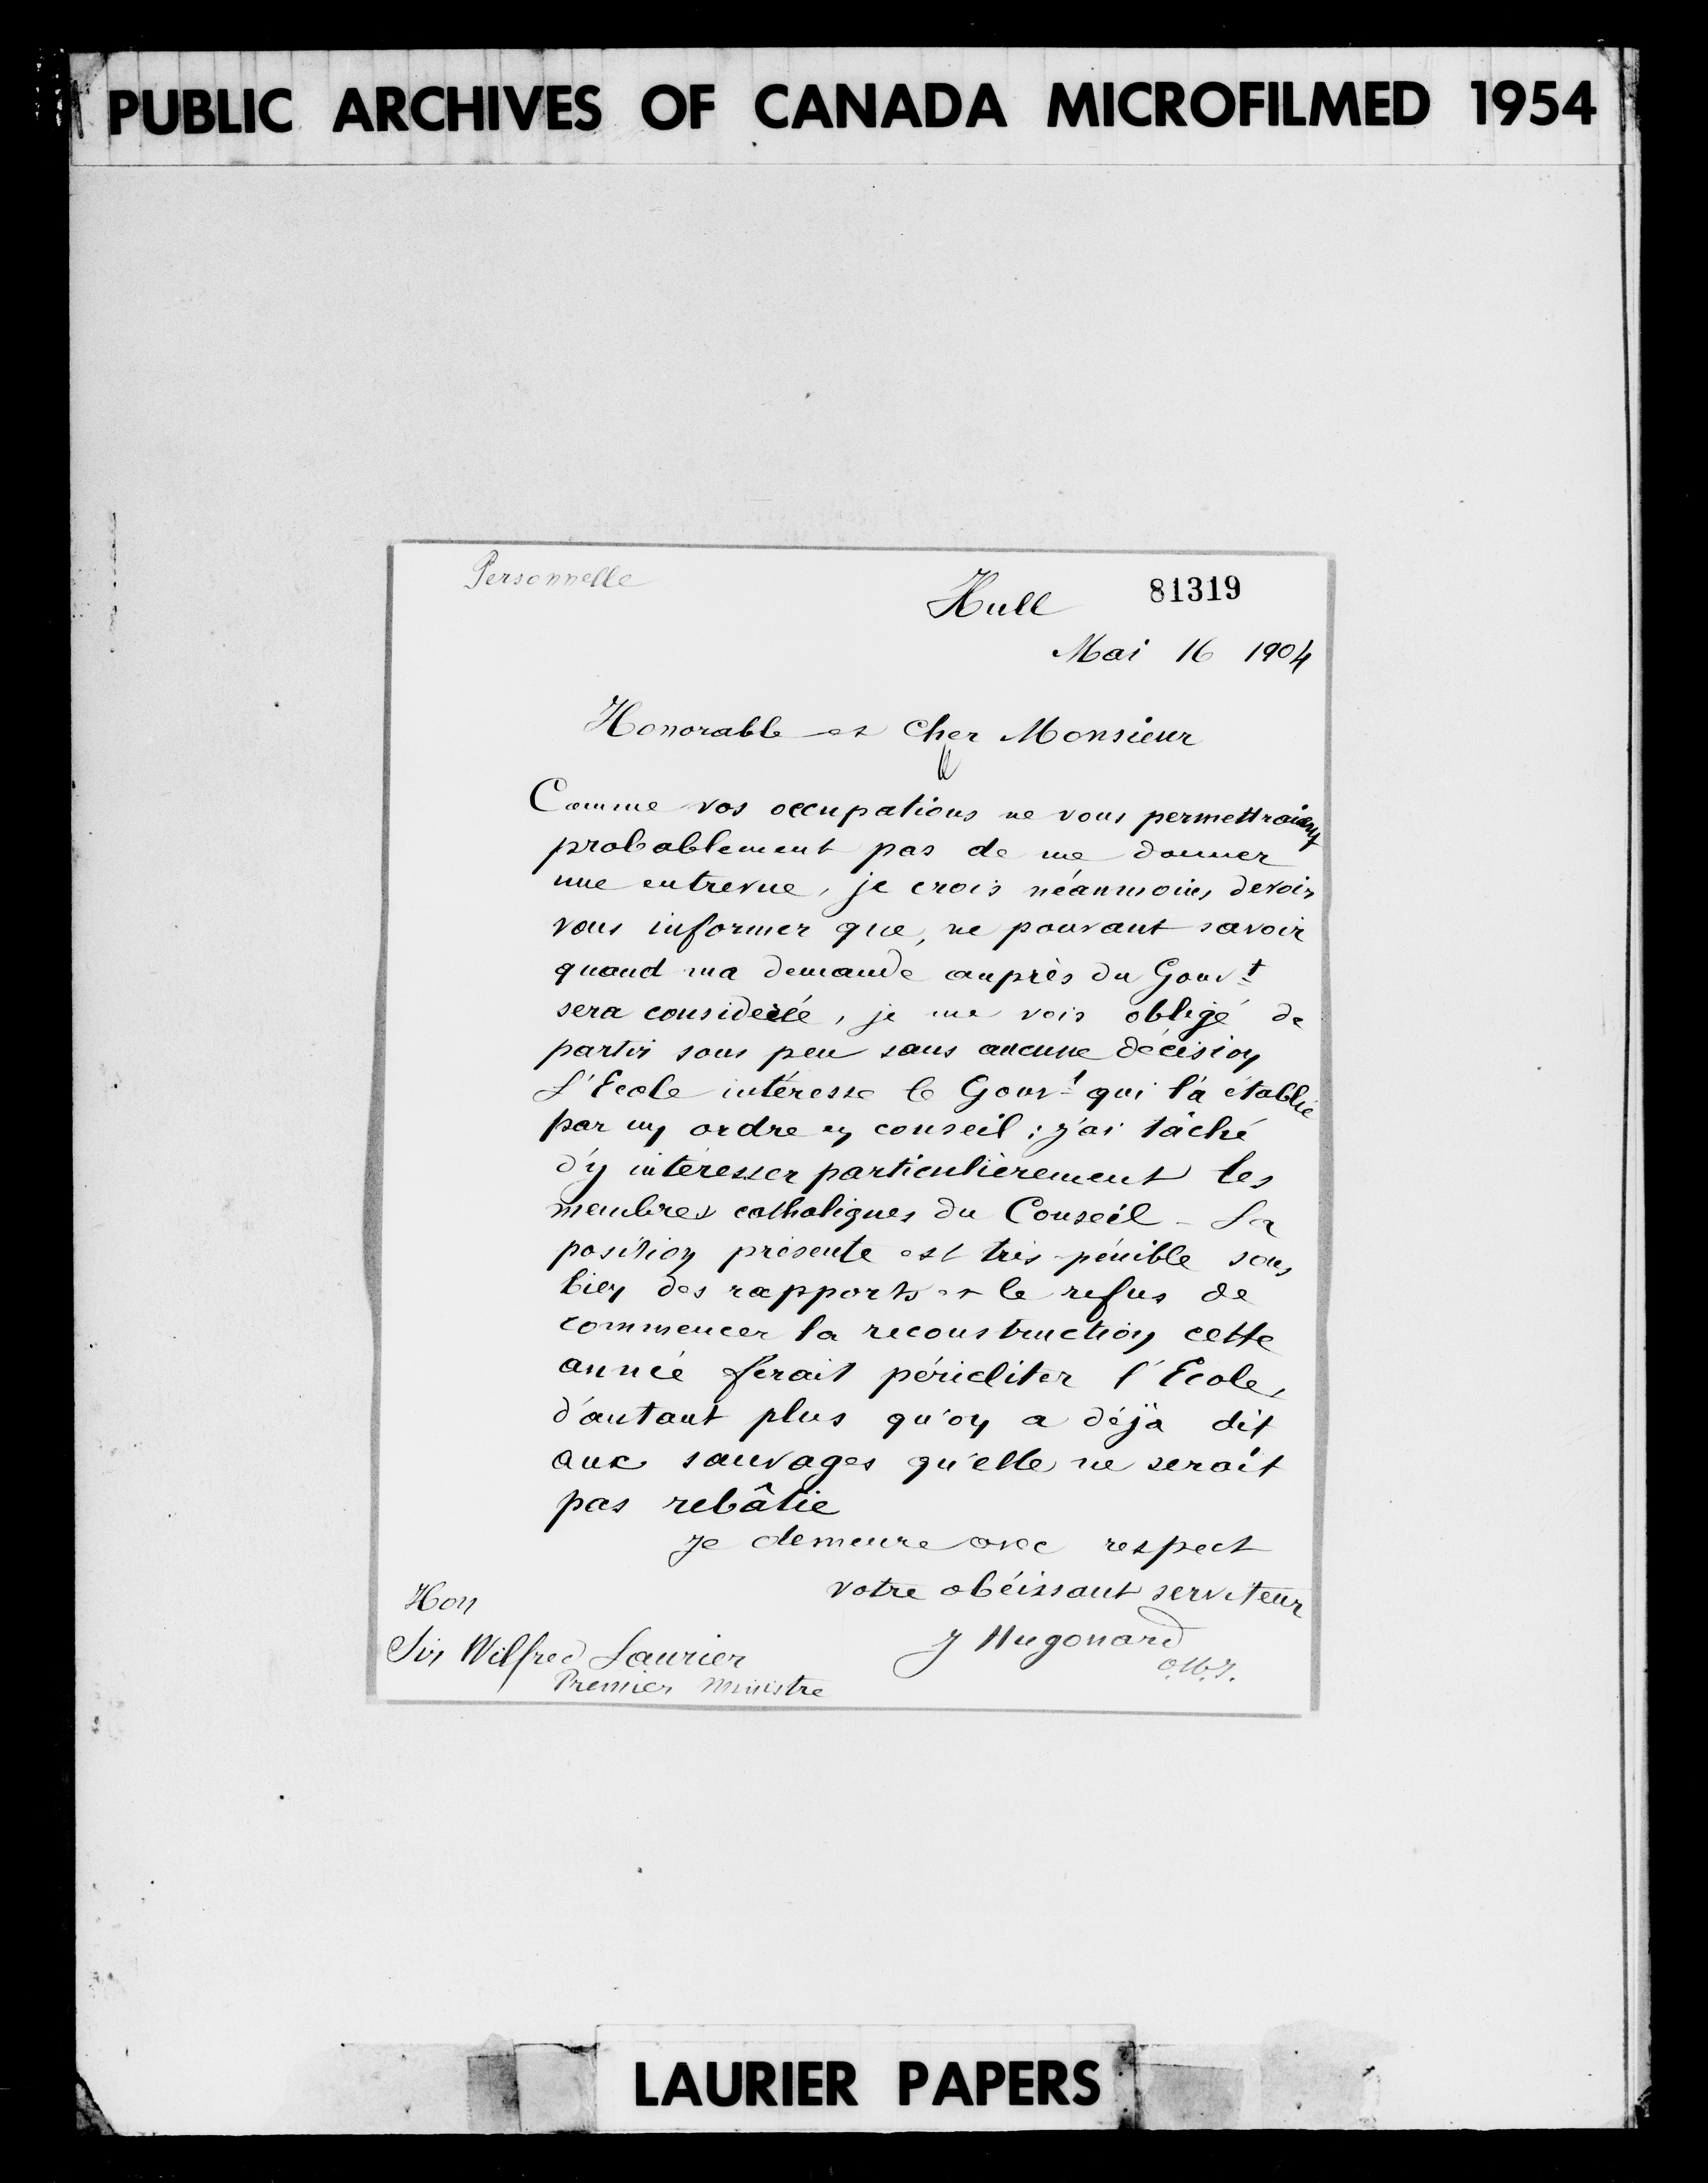 PUBLIC ARCHIVES OF CANADA MICROFILMED 1954
Personnelle
Hull 81319
Mai 16 1904
Honorable et Cher Monsieur
Comme vos occupations ne vous permettraient
probablement pas de me donner
une entrevue, je crois néanmoins devoir
vous informer que, ne pouvant savoir
quand ma demande auprès du Gouvt
sera considerée, je me vois obligé de
partir sous peu sans aucune décision
L'Ecole intéresse le Gouvt qui l'a établie
par un ordre en conseil : j'ai tâché
d'y intéresser particulièrement les
membres catholiques du Conseil - Sa
position présente est très pénible sous
bien des rapports et le refus de
commencer la reconstruction cette
année ferait péricliter l'Ecole,
d'autant plus qu'on a déjà dit
aux sauvages qu'elle ne serait
pas rebâtie
Je demeure avec respect
votre obéissant serviteur
J Hugonard
o.m.i.
Hon
Sir Wilfred Laurier
Premier Ministre
LAURIER PAPERS